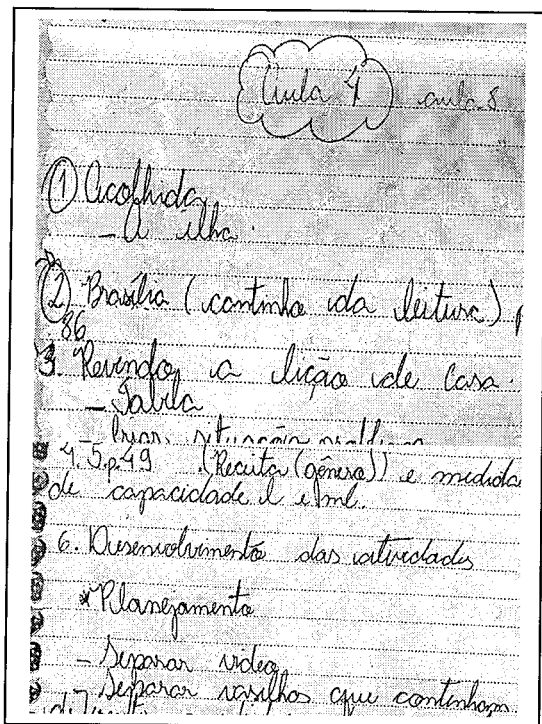 Aula 1 aula 8
① Acolhida
- A ilha.
② Brasília (cantinho da leitura) p
86
3. Revendo a lição de casa.
- Tabela
- Criar situação problema
4.5.p.49 (Receita (gênero)) e medida
de capacidade l e ml.
6. Desenvolvimento das atividades
*Planejamento
- Separar video
- Separar vasilhas que contenham